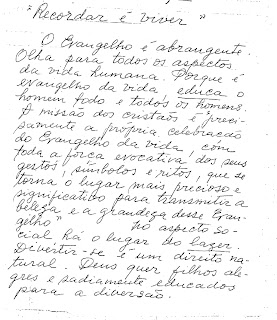 "Recordar é viver"
O Evangelho é abrangente.
Olha para todos os aspectos
da vida humana. Porque é
evangelho da vida, educa o
homem todo e todos os homens.
A missão dos cristãos é "preci-
samente a própria celebração
do Evangelho da vida, com
toda a força evocativa dos seus
gestos, símbolos e ritos, que se
torna o lugar mais precioso e
significativo para transmitir a
beleza e a grandeza desse Evan-
gelho" no aspecto so-
cial há o lugar do lazer.
Divertir-se é um direito na-
tural. Deus quer filhos ale-
gres e sadiamente educados
para a diversão.